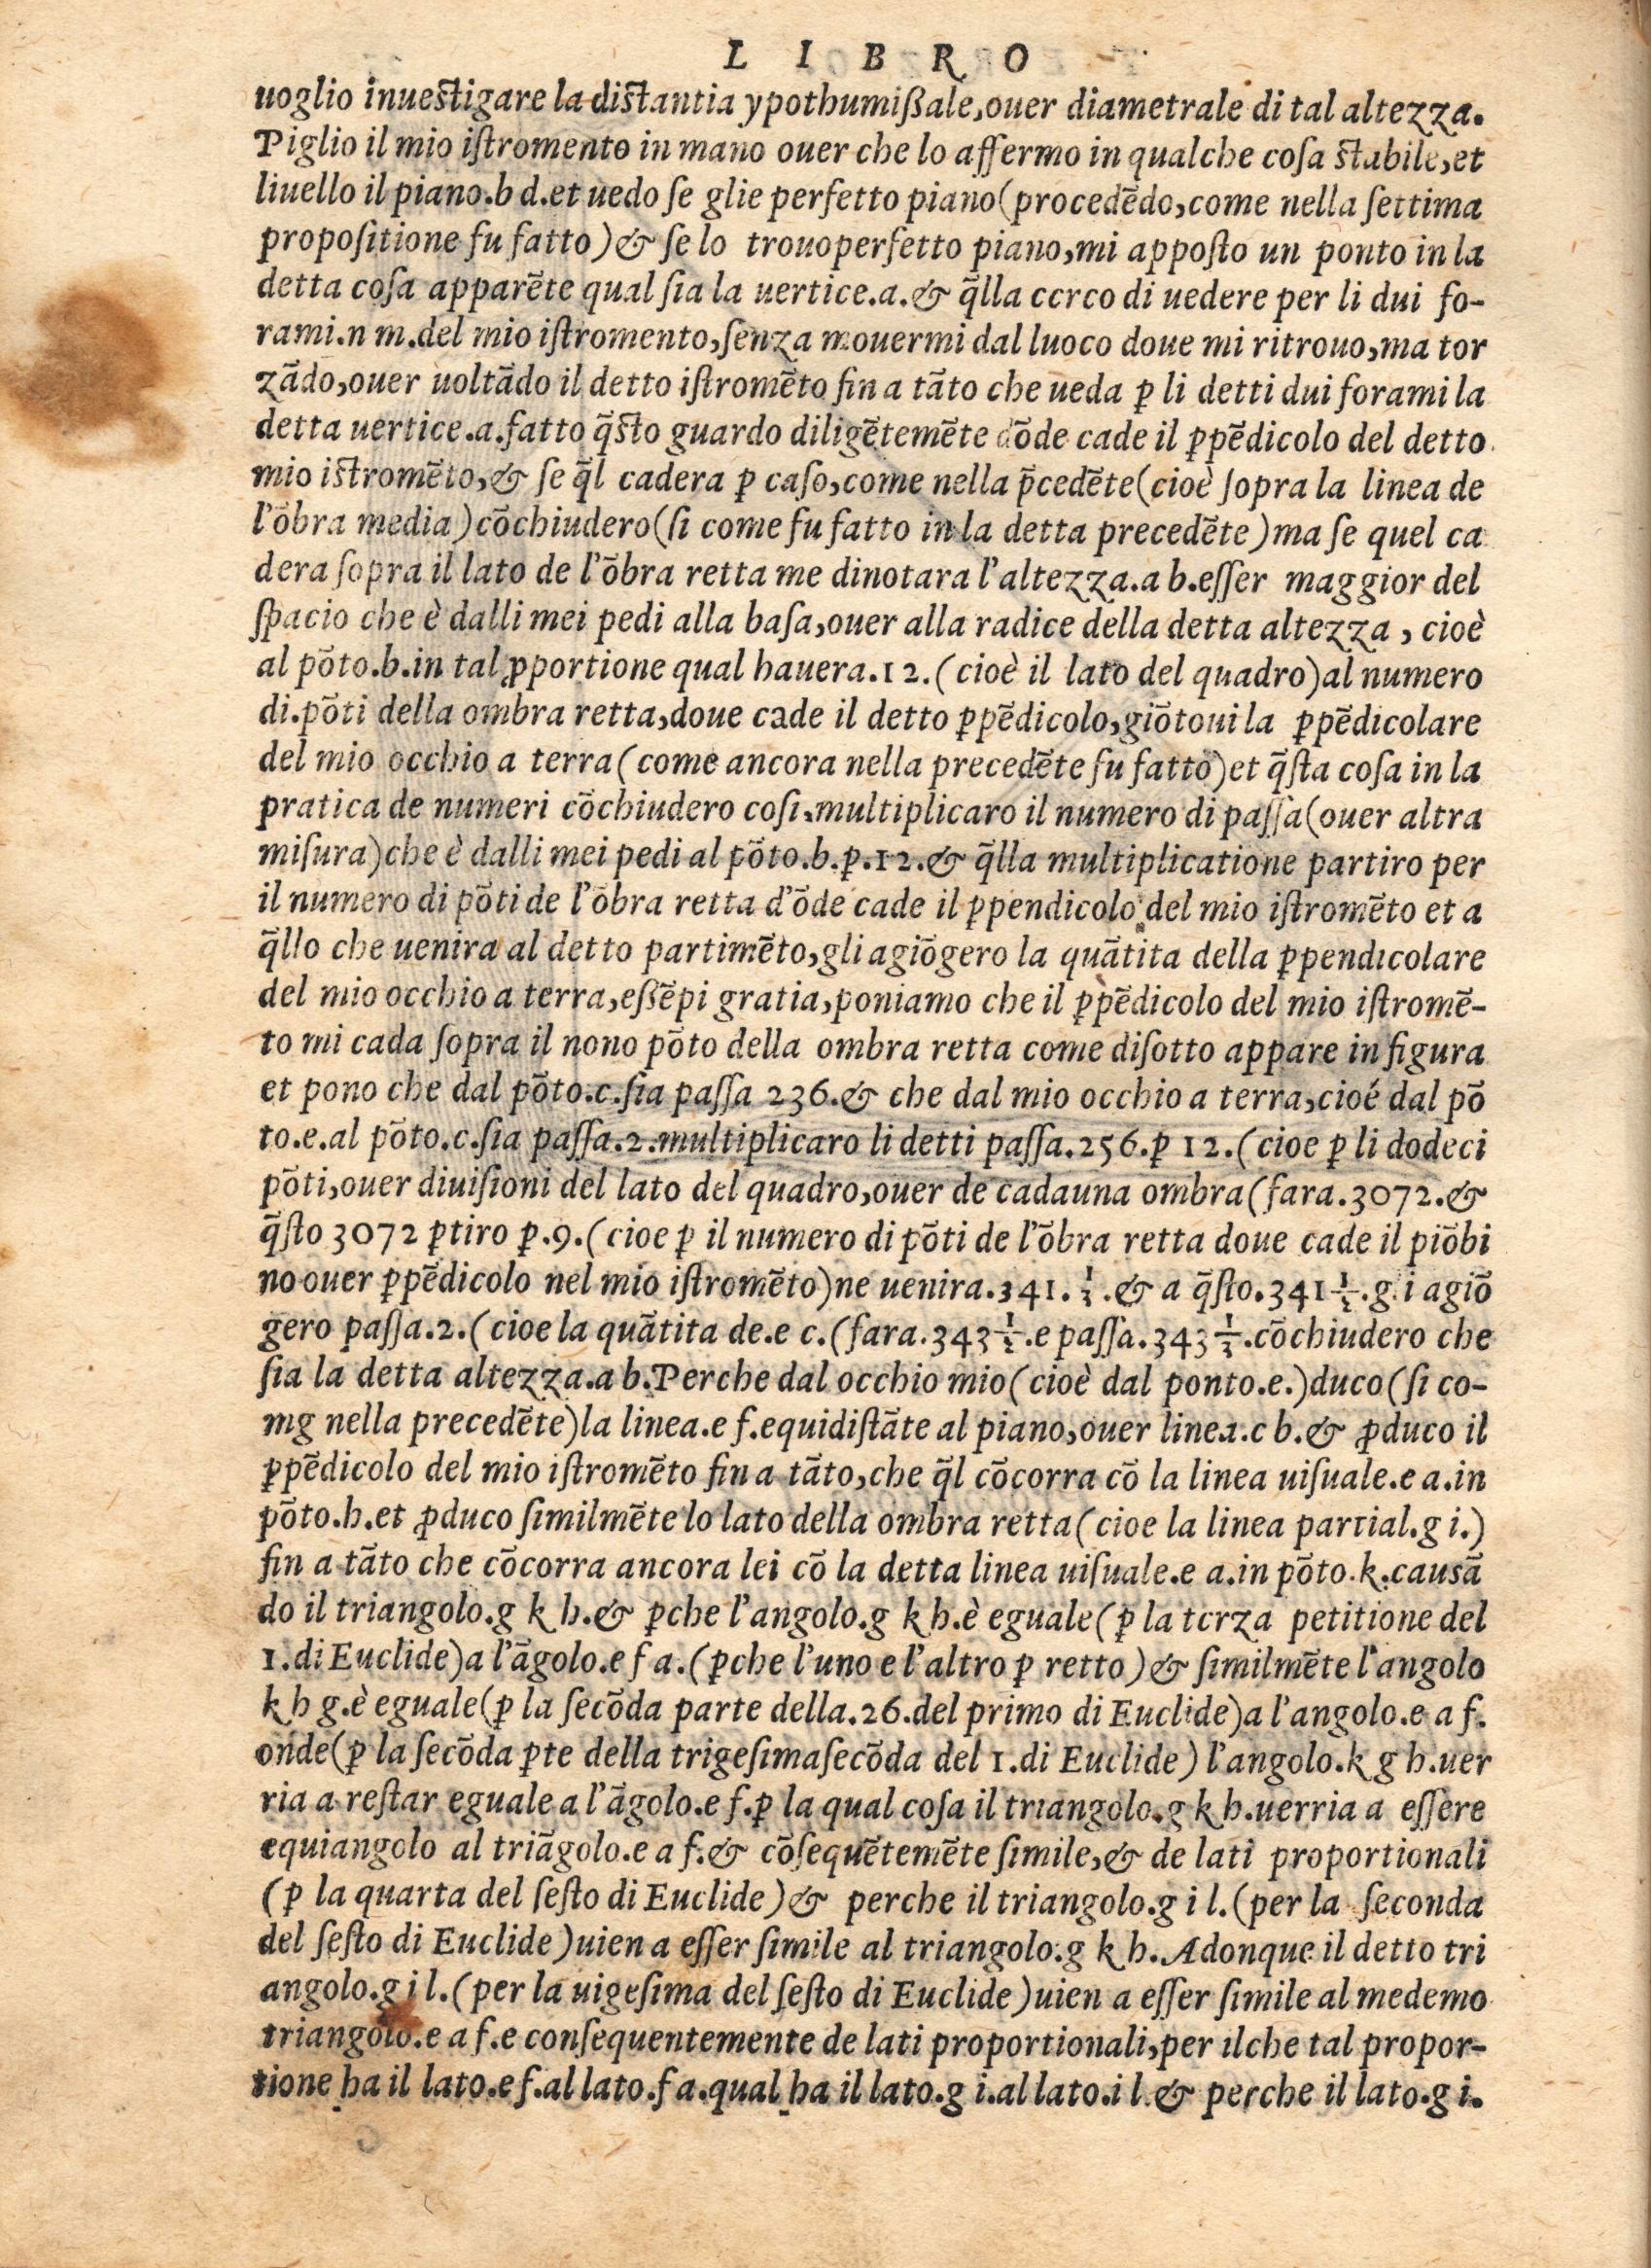 L I B R O
uoglio inuestigare la distantia ypothumißale, ouer diametrale di tal altezza.
Piglio il mio iſtromento in mano ouer che lo affermo in qualche coſa stabile, et
liuello il piano.b d.et uedo ſe glie perfetto piano(procedēdo, come nella ſettima
propoſitione fu fatto)& ſe lo trouoperfetto piano, mi appoſto un ponto in la
detta coſa apparēte qual ſia la uertice.a.& q̄lla ccrco di uedere per li dui fo-
rami.n m.del mio iſtromento, ſenza mouermi dal luoco doue mi ritrouo, ma tor
zādo, ouer uoltādo il detto iſtromēto fin a tāto che ueda ꝑ li detti dui forami la
detta uertice.a.fatto q̄sto guardo diligētemēte dōde cade il ꝑpēdicolo del detto
mio istromēto, & ſe q̄l cadera ꝑ caſo, come nella p̄cedēte(cioè ſopra la linea de
l'ōbra media)cōchiudero(ſi come fu fatto in la detta precedēte)ma ſe quel ca
dera ſopra il lato de l'ōbra retta me dinotara l'altezza.a b.eſſer maggior del
ſpacio che è dalli mei pedi alla baſa, ouer alla radice della detta altezza , cioè
al pōto.b.in tal ꝓportione qual hauera.12.(cioè il lato del quadro)al numero
di.pōti della ombra retta, doue cade il detto ꝑpēdicolo, giōtoui la ꝑpēdicolare
del mio occhio a terra(come ancora nella precedēte fu fatto)et q̄ſta coſa in la
pratica de numeri cōchiudero coſi.multiplicaro il numero di paſſa(ouer altra
miſura)che è dalli mei pedi al pōto.b.ꝑ.12.& q̄lla multiplicatione partiro per
il numero di pōti de l'ōbra retta d'ōde cade il ꝑpendicolo del mio iſtromēto et a
q̄llo che uenira al detto partimēto, gli agiōgero la quātita della ꝑpendicolare
del mio occhio a terra, eßēpi gratia, poniamo che il ꝑpēdicolo del mio iſtromē-
to mi cada ſopra il nono pōto della ombra retta come diſotto appare in figura
et pono che dal pōto.c.ſia paſſa 236.& che dal mio occhio a terra, cioé dal pō
to.e.al pōto.c.ſia paſſa.2.multiplicaro li detti paſſa.256.ꝑ 12.(cioe ꝑ li dodeci
pōti, ouer diuiſioni del lato del quadro, ouer de cadauna ombra(fara.3072.&
q̄ſto 3072 ꝑtiro ꝑ.9.(cioe ꝑ il numero di pōti de l'ōbra retta doue cade il piōbi
no ouer ꝑpēdicolo nel mio iſtromēto)ne uenira.341.1/3.& a q̄ſto.341 1/2.g i agiō
gero paſſa.2.(cioe la quātita de.e c.(fara.343 1/2.e paſſa.343 1/3.cōchiudero che
ſia la detta altezza.a b.Perche dal occhio mio(cioè dal ponto.e.)duco(ſi co-
mg nella precedēte)la linea.e f.equidiſtāte al piano, ouer linea.c b.& ꝓduco il
ꝑpēdicolo del mio iſtromēto fin a tāto, che q̄l cōcorra cō la linea uiſuale.e a.in
pōto.h.et ꝓduco ſimilmēte lo lato della ombra retta(cioe la linea partial.g i.)
fin a tāto che cōcorra ancora lei cō la detta linea uiſuale.e a.in pōto.k.causā
do il triangolo.g k h.& ꝑche l'angolo.g k h.è eguale(ꝑ la tcrza petitione del
1.di Euclide)a l'āgolo.e f a.(ꝑche l'uno e l'altro ꝑ retto)& ſimilmēte l'angolo
k h g.è eguale(ꝑ la ſecōda parte della.26.del primo di Euclide)a l'angolo.e a f.
onde(ꝑ la ſecōda ꝑte della trigeſimaſecōda del 1.di Euclide)l'angolo.k g h.uer
ria a reſtar eguale a l'āgolo.e f.ꝑ la qual coſa il triangolo.g k h.uerria a eſſere
equiangolo al triāgolo.e a f.& cōſequētemēte ſimile, & de lati proportionali
(ꝑ la quarta del ſeſto di Euclide)& perche il triangolo.g i l.(per la ſeconda
del ſeſto di Euclide)uien a eſſer ſimile al triangolo.g k h. Adonque il detto tri
angolo.g i l.(per la uigeſima del ſeſto di Euclide)uien a eſſer ſimile al medemo
triangolo.e a f.e conſequentemente de lati proportionali, per ilche tal propor-
tione ha il lato.e f.al lato.f a.qual ha il lato.g i.al lato.i l.& perche il lato.g i.